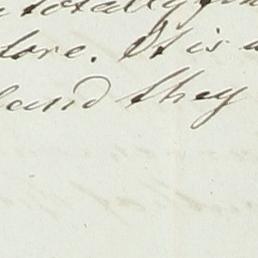 totally
fore. It is a
land they